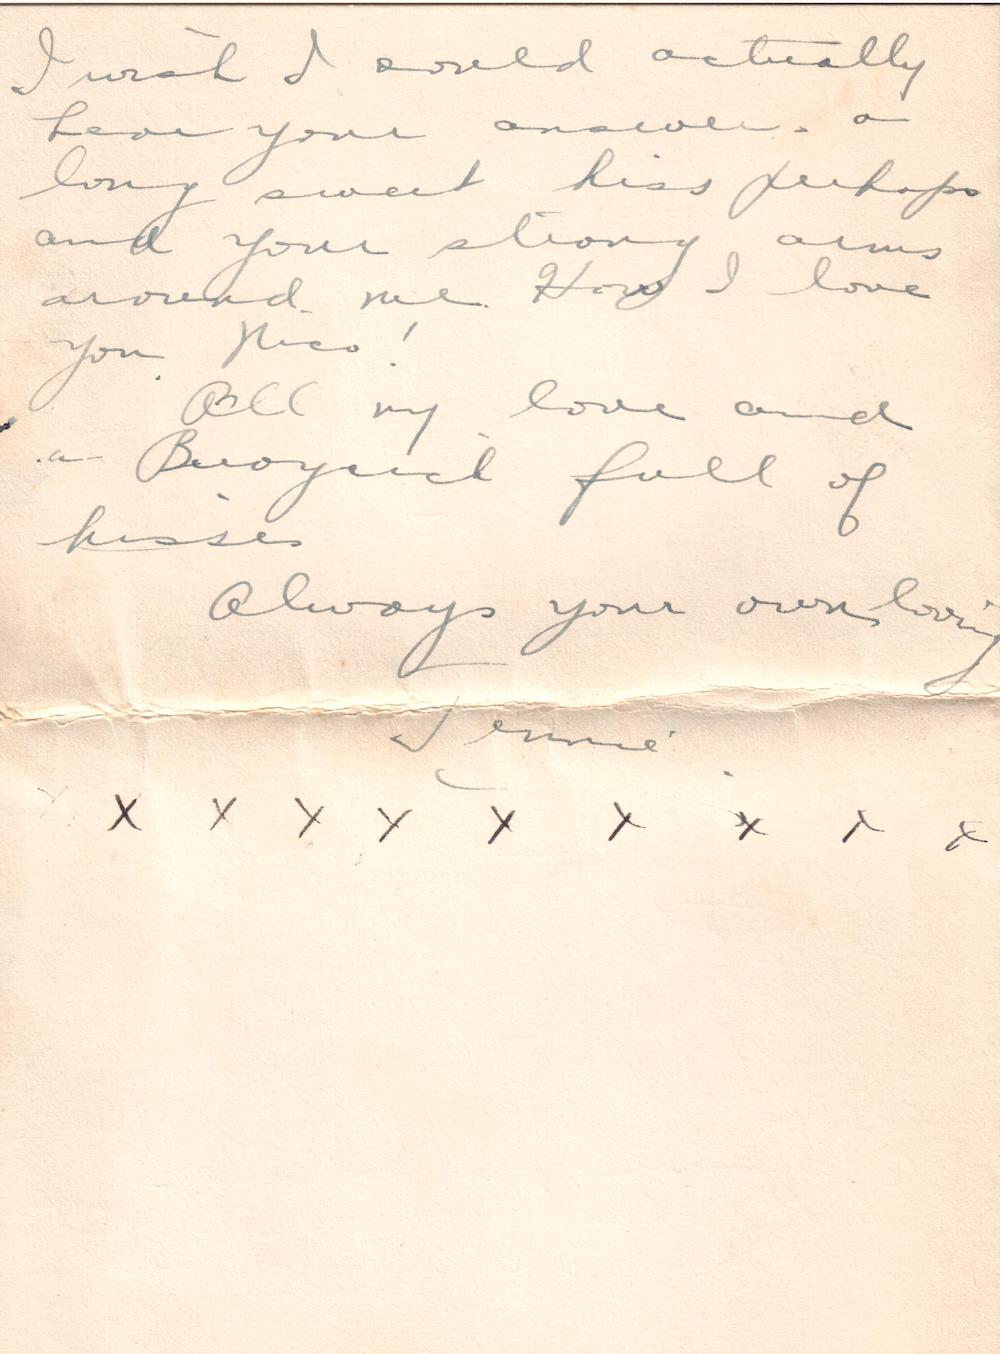 I wish I could actually
hear your answer. a
long sweet kiss perhaps
and your strong arms
around me. How I love
you Nico!
All my love and
a full of
kisses
Always your own loving
Jennie
x x x x x x x x x